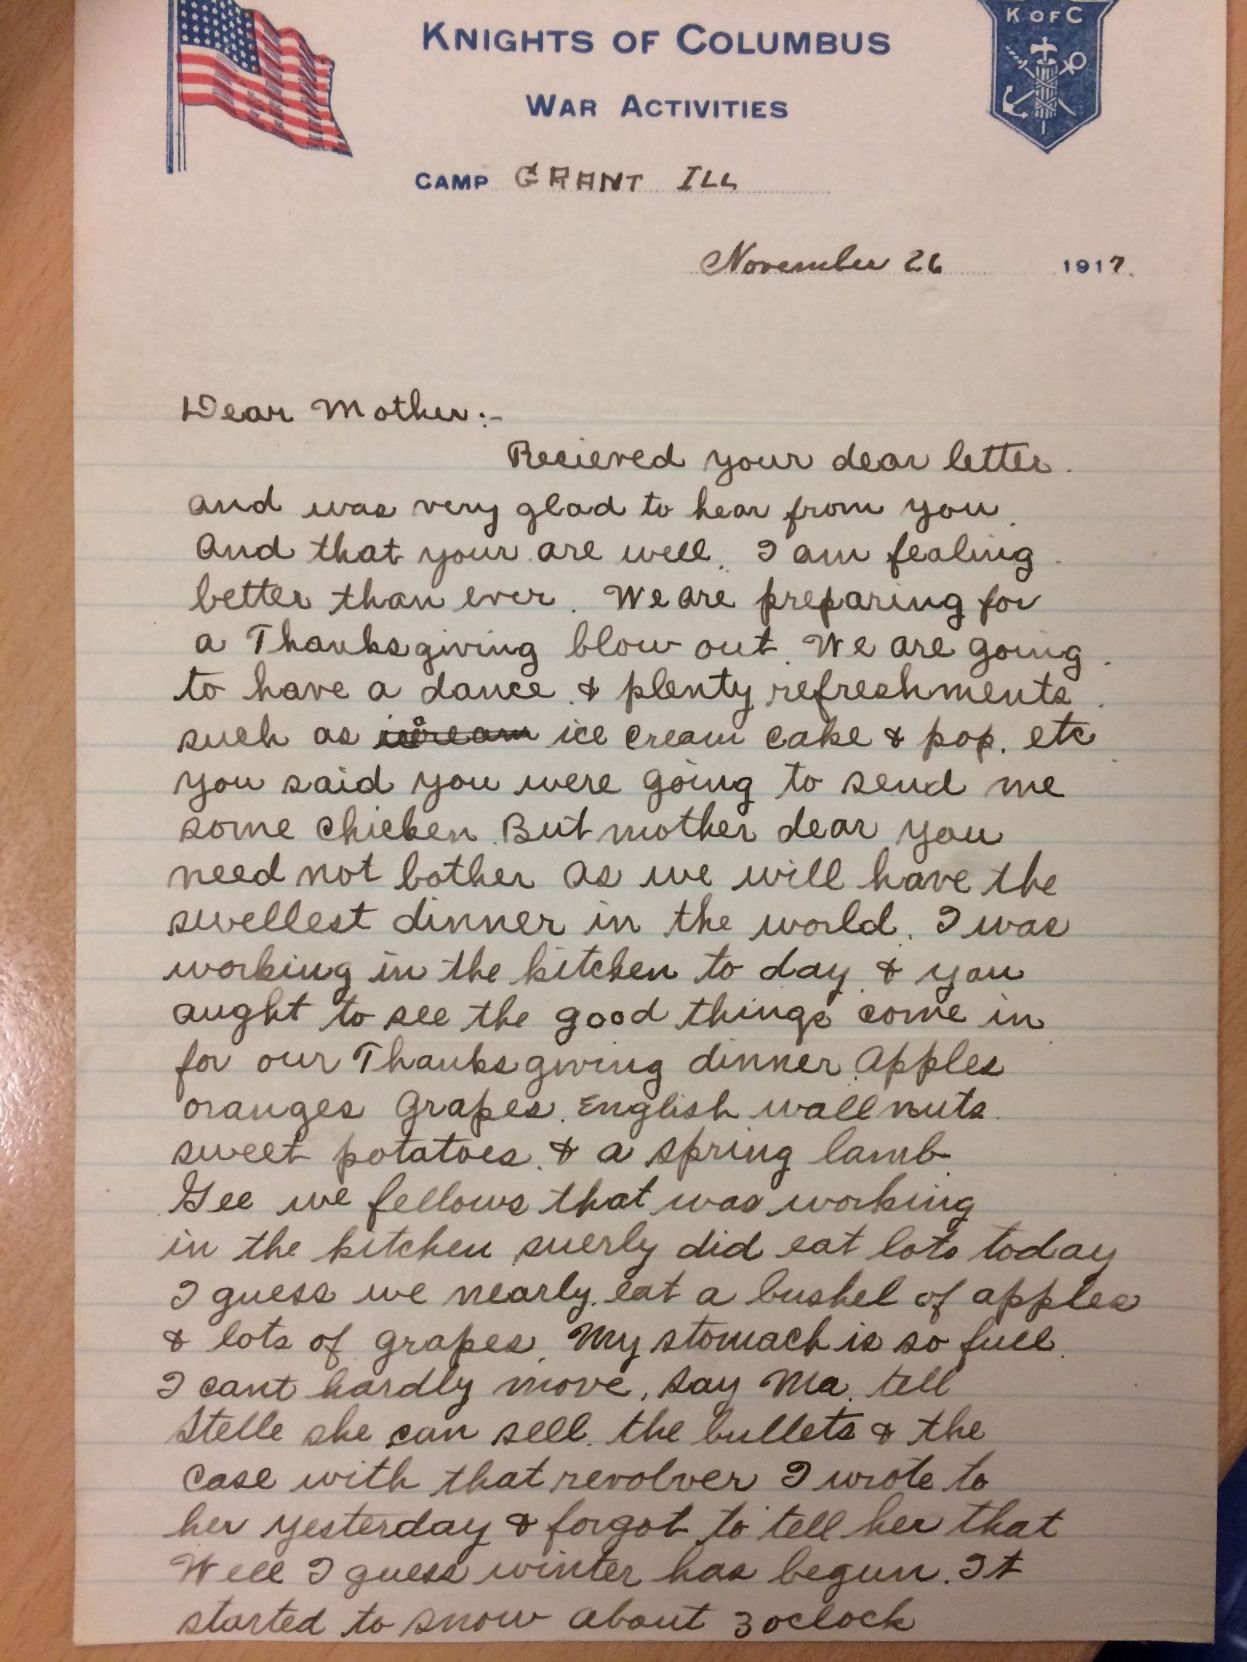 K OF C
KNIGHTS OF COLUMBUS
WAR ACTIVITIES
CAMP GRANT ILL
November 26 1917.
Dear Mother:-
Recieved your dear letter.
and was very glad to hear from you.
And that your are well. I am fealing.
better than ever. We are preparing for
a Thanksgiving blow out. We are going.
to have a dance & plenty refreshments.
such as icream ice cream cake & pop. etc
you said you were going to send me
some chicken. But mother dear you
need not bother as we will have the
swellest dinner in the world. I was
working in the kitchen to day. & you
aught to see the good things come in
for our Thanksgiving dinner. Apples
oranges grapes. English wallnuts.
sweet potatoes. & a spring lamb.
Gee we fellows that was working
in the kitchen suerly did eat lots today
I guess we nearly. eat a bushel of apples
& lots of grapes. My stomach is so full.
I cant hardly move. Say Ma. tell
Stelle she can sell. the bullets & the
case with that revolver I wrote to
her yesterday & forgot to tell her that
Well I guess winter has begun. It
started to snow about 3 oclock